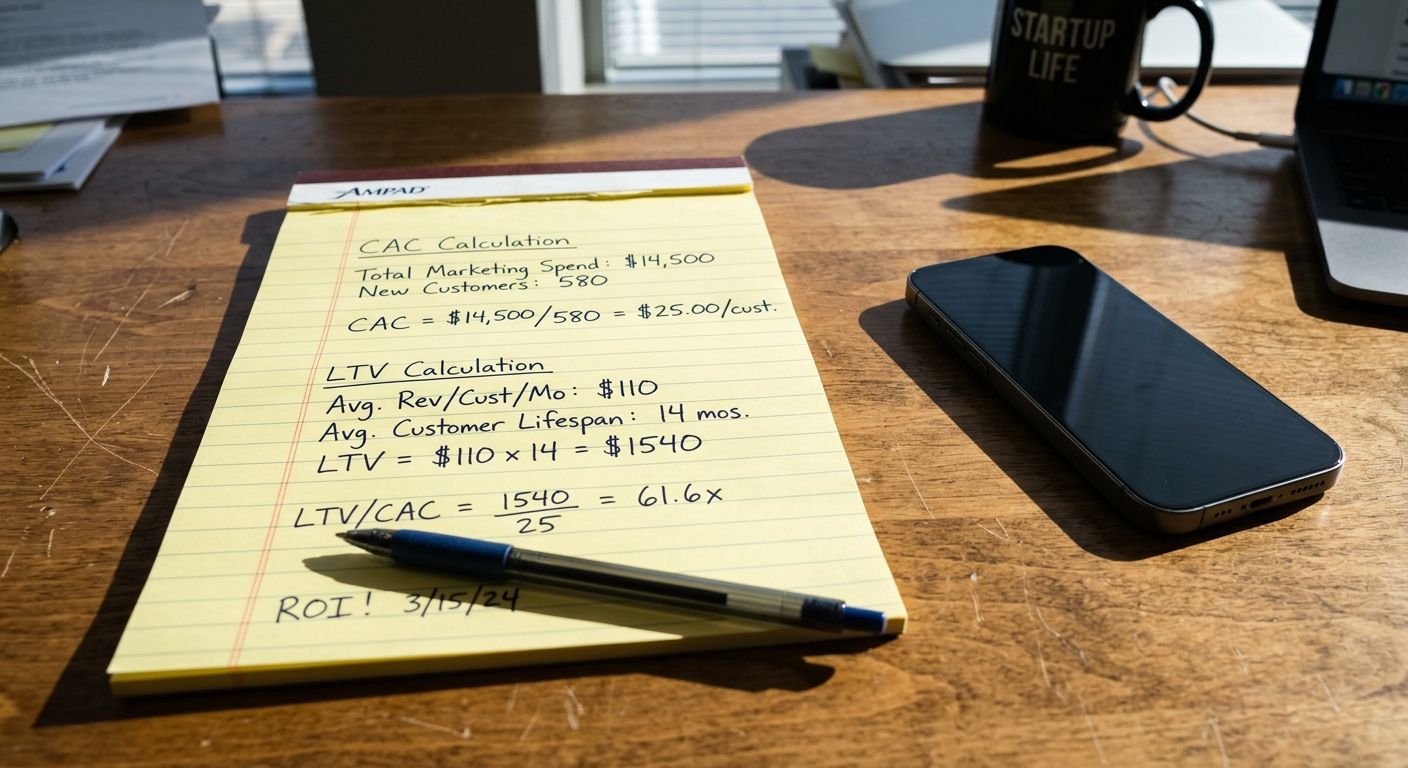 STARTUP
LIFE
AMPAD
CAC Calculation
Total Marketing Spend: $14,500
New Customers: 580
CAC = $14,500/580 = $25.00/cust.
LTV Calculation
Avg. Rev/Cust/Mo: $110
Avg. Customer Lifespan: 14 mos.
LTV = $110 x 14 = $1540
LTV/CAC = 1540/25 = 61.6x
ROI! 3/15/24